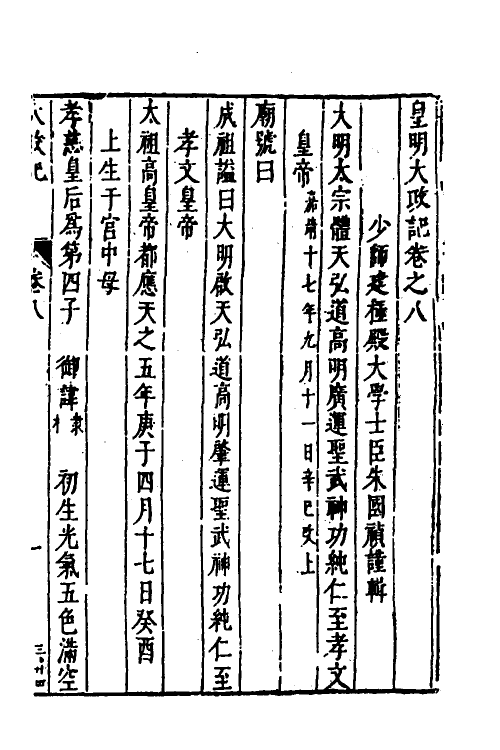 皇明大政記卷之八
少師建極殿大學士臣朱國禎謹輯
大明太宗體天弘道高明廣運聖武神功純仁至孝文
皇帝嘉靖十七年九月十一日辛巳改上
廟號曰
成祖諡曰大明啟天弘道高明肇運聖武神功純仁至
孝文皇帝
太祖高皇帝都應天之五年庚子四月十七日癸酉
上生于宮中母
孝慈皇后為第四子 御諱棣 初生光氣五色滿空
大政記 卷八 一